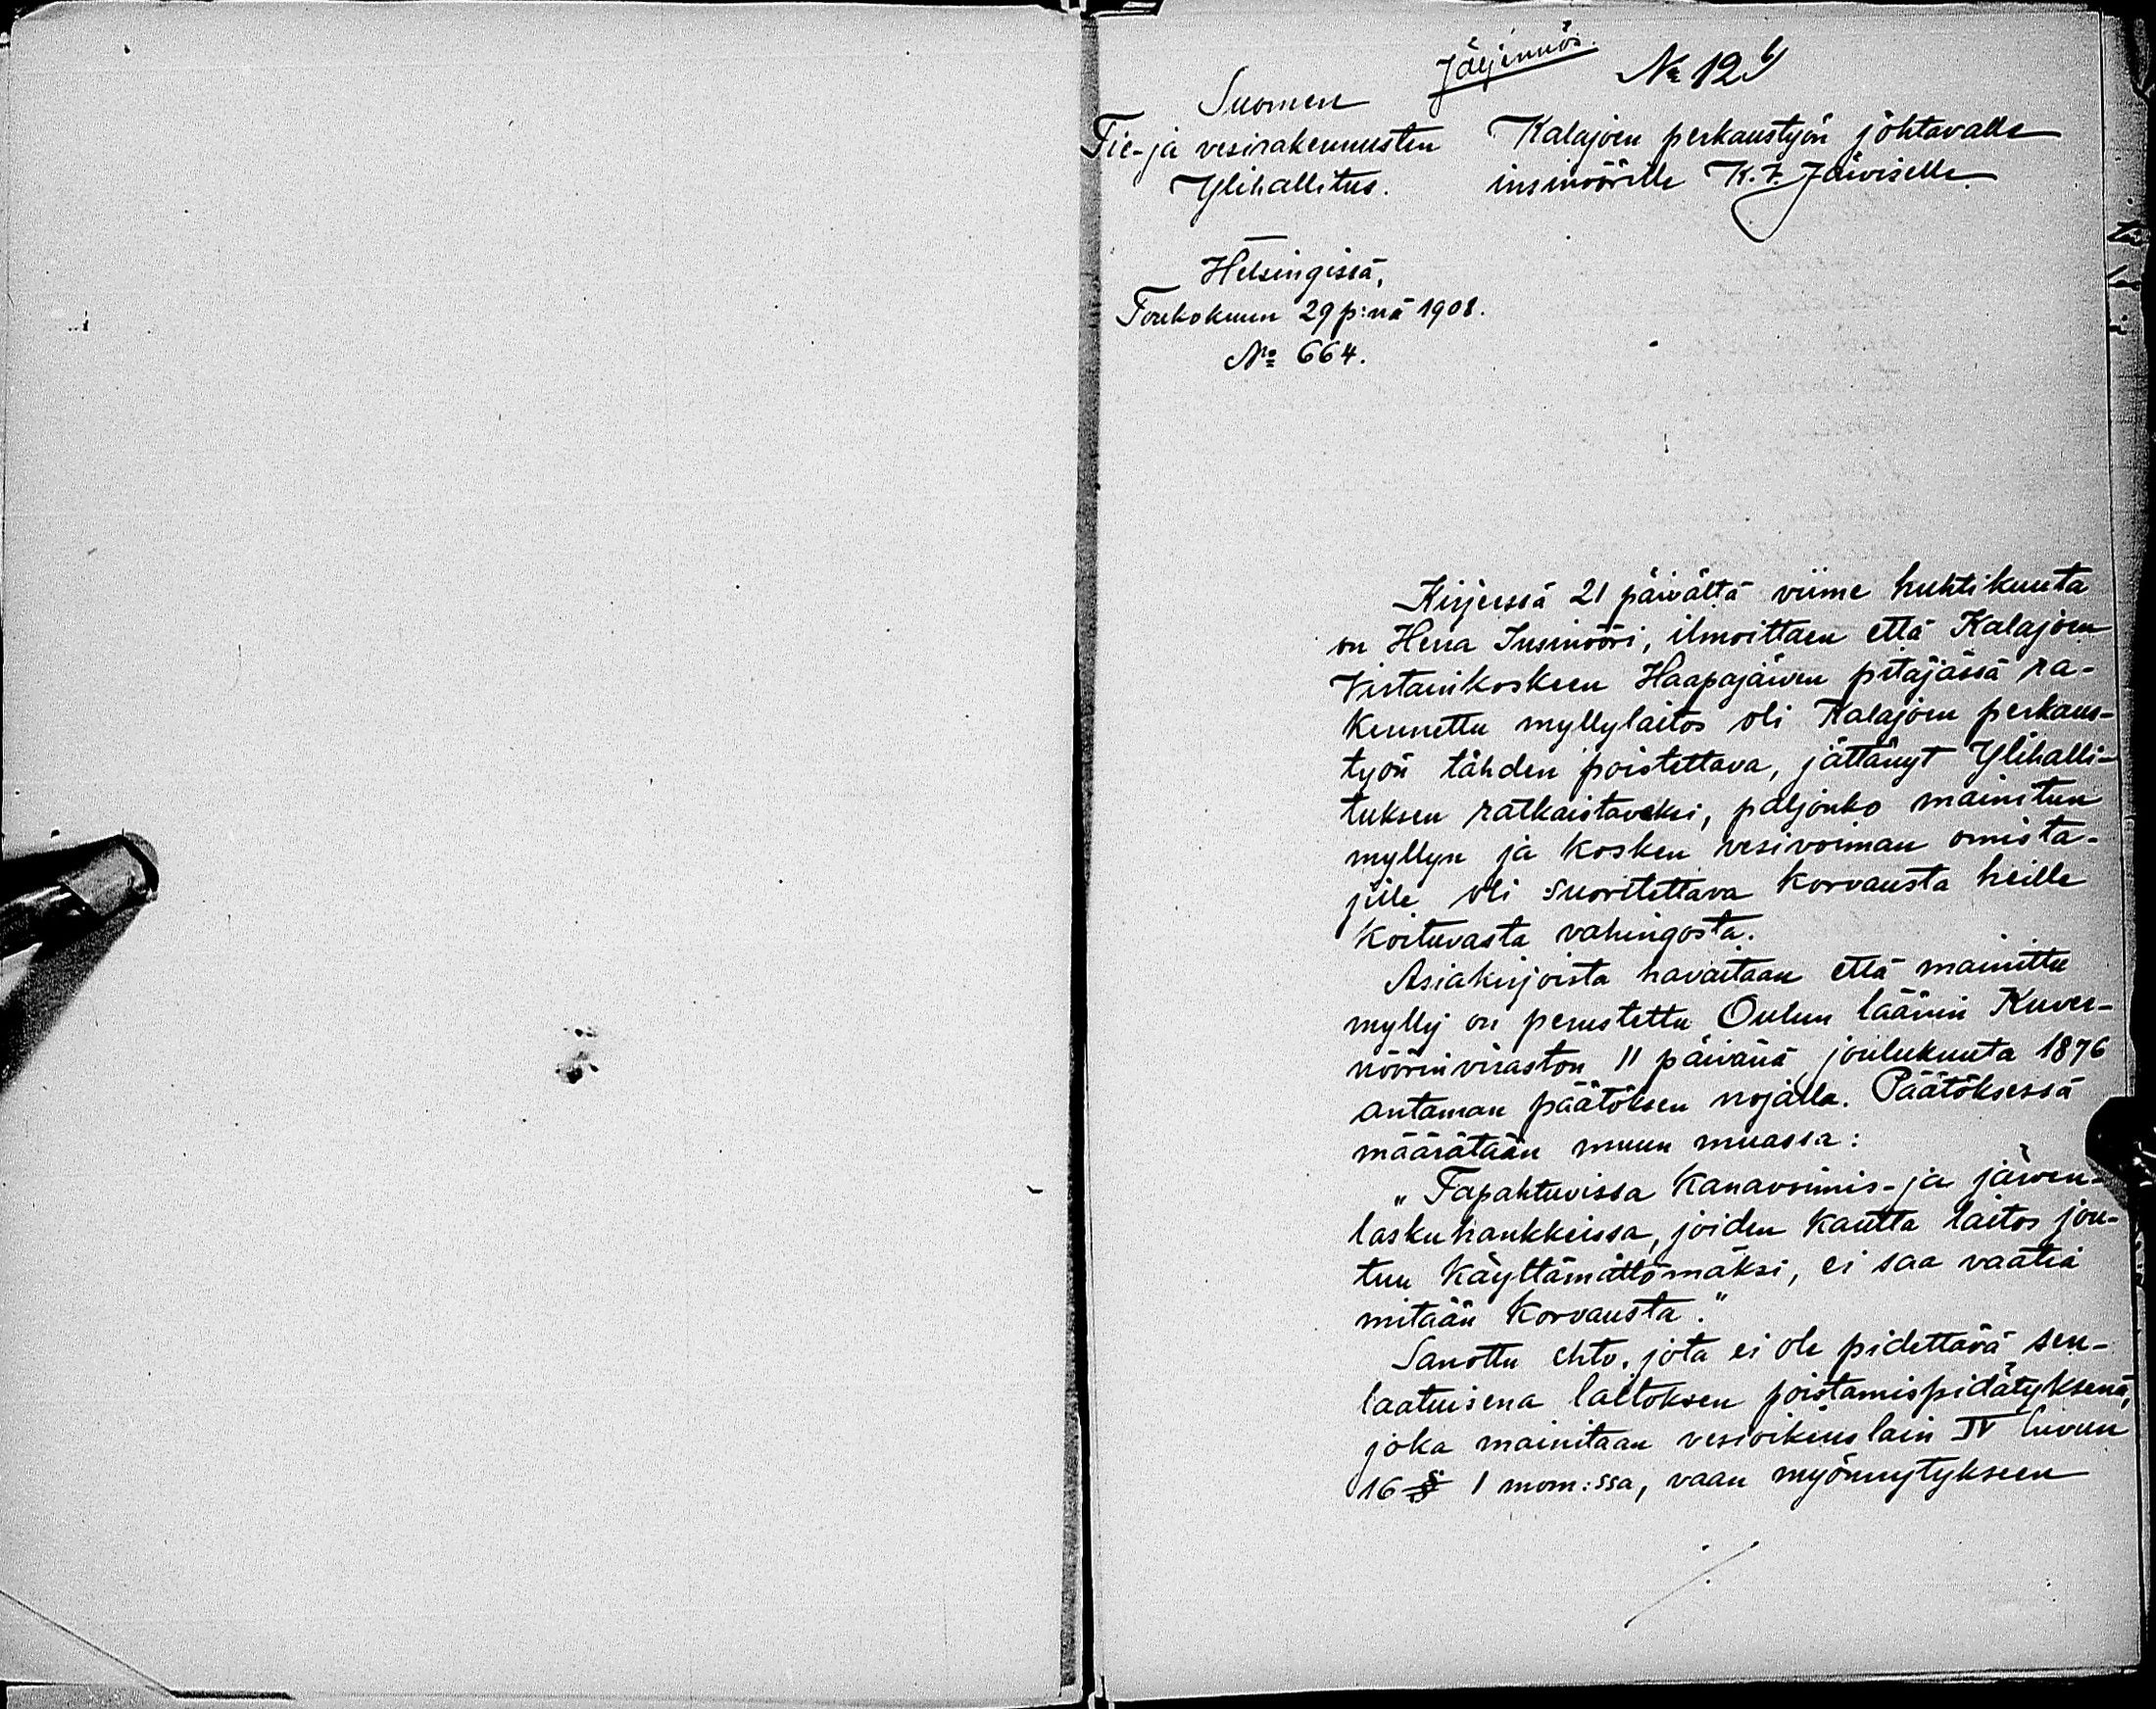 Jäljennös.
№ 12 b/
Suomen
Tie- ja vesirakennusten
Ylihallitus.
Kalajoen perkaustyön johtavalle
insinöörille K. F. Järviselle.
Helsingissä,
Toukokuun 29 p:nä 1908.
№ 664.
Kirjeessä 21 päivältä viime huhtikuuta
on Herra Insinööri, ilmoittaen että Kalajoen
Vistainkoskeen Haapajärven pitäjässä ra-
kennettu myllylaitos oli Kalajoen perkaus-
työn tähden poistettava, jättänyt Ylihalli-
tuksen ratkaistavaksi, paljonko mainitun
myllyn ja kosken vesivoiman omista-
jille oli suoritettava korvausta heille
koituvasta vahingosta.
Asiakirjoista havaitaan että mainittu
mylly on perustettu Oulun läänin Kuver-
nöörinviraston 11 päivänä joulukuuta 1876
antaman päätöksen nojalla. Päätöksessä
määrätään muun muassa:
„Tapahtuvissa kanavoimis- ja järven-
laskuhankkeissa, joiden kautta laitos jou-
tuu käyttämättömäksi, ei saa vaatia
mitään korvausta."
Sanottu ehto, jota ei ole pidettävä sen-
laatuisena laitoksen poistamispidätyksenä,
joka mainitaan vesioikeuslain IV luvun
16 § 1 mom:ssa, vaan myönnytykseen
./.